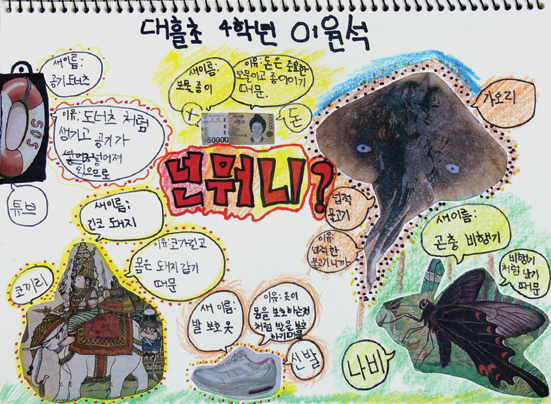 대흘초 4학년 이윤석
새이름:
공기 도너츠
이유: 도너츠 처럼
생기고 공기가
있으므로
SOS
튜브
새이름:
보물 종이
이유: 돈은 중요한
보물이고 종이이기
때문.
50000
돈
넌 뭐니?
가오리
넙적
물고기
이유:
넙적한
물고기 니까
새이름:
긴코 돼지
이유: 코가 길고
몸은 돼지 같기
때문
코끼리
새 이름:
발 보호 옷
이유: 옷이
몸을 보호하는것
처럼 발을 보호
하기때문
신발
새이름:
곤충 비행기
비행기
처럼 날기
때문
나비